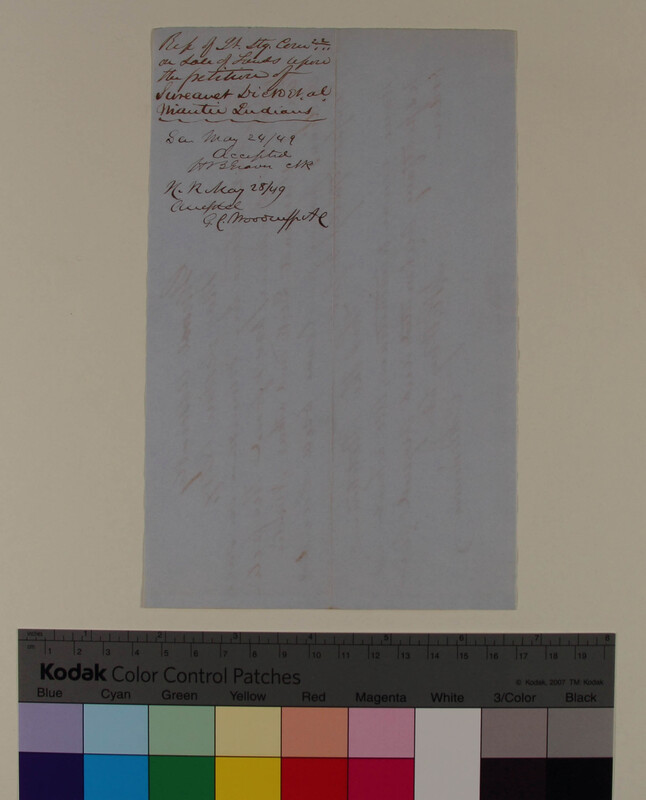 Rep. of Jt. Stg. Comee
on Sale of Lands upon
the petition of
Dick et. al
Niantic Indians
Sen. May 24/49
Accepted
H B Graves Clk
H. R. May 28/49
Accepted
G. C. Woodruff A C
inches 1 2 3 4 5 6 7 8
cm 1 2 3 4 5 6 7 8 9 10 11 12 13 14 15 16 17 18 19
Kodak Color Control Patches
© Kodak, 2007 TM: Kodak
Blue Cyan Green Yellow Red Magenta White 3/Color Black